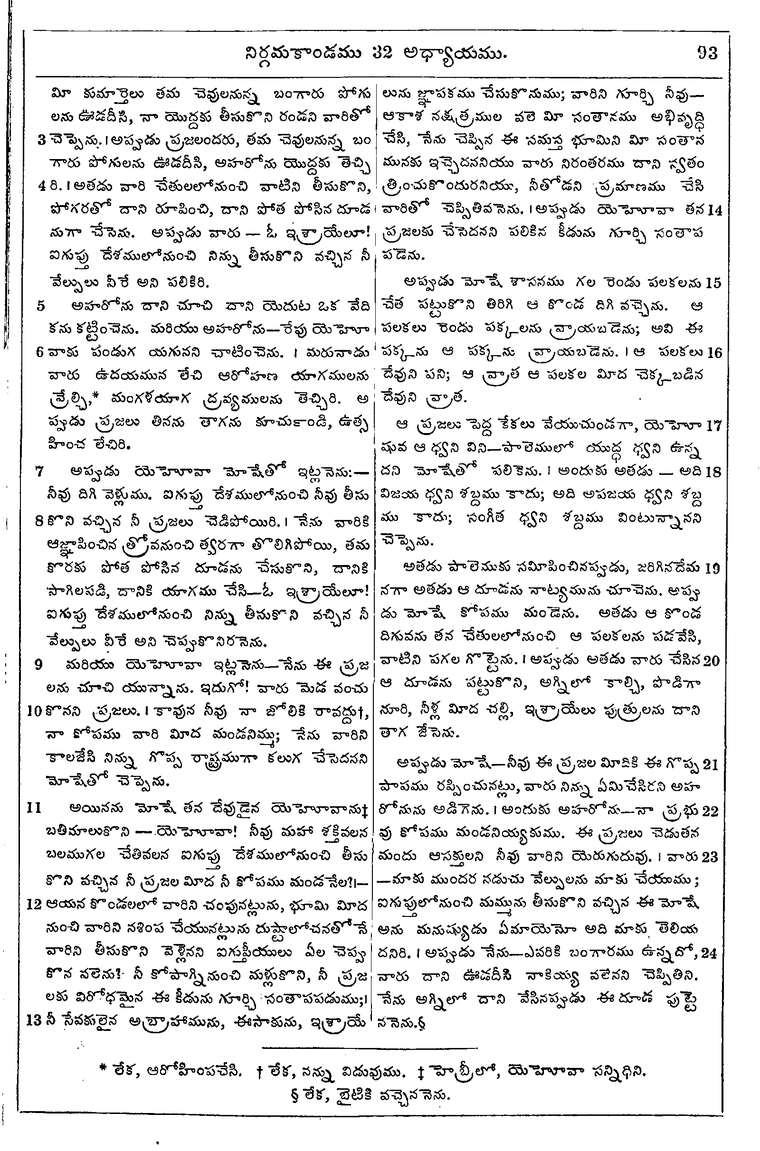 నిర్గమకాండము 32 అధ్యాయము. 93
మీ కుమార్తెలు తమ చెవులనున్న బంగారు పోగు
లను ఊడదీసి, నా యొద్దకు తీసుకొని రండని వారితో
3 చెప్పెను. । అప్పుడు ప్రజలందరు, తమ చెవులనున్న బం
గారు పోగులను ఊడదీసి, అహరోను యొద్దకు తెచ్చి
4 రి. । అతడు వారి చేతులలోనుంచి వాటిని తీసుకొని,
పోగరతో దాని రూపించి, దాని పోత పోసిన దూడ
నుగా చేసెను. అప్పుడు వారు — ఓ ఇశ్రాయేలూ!
ఐగుప్తు దేశములోనుంచి నిన్ను తీసుకొని వచ్చిన నీ
వేల్పులు వీరే అని పలికిరి.
5 అహరోను దాని చూచి దాని యెదుట ఒక వేది
కను కట్టించెను. మరియు అహరోను—రేపు యెహో

6 వాకు పండుగ యగునని చాటించెను. । మరునాడు
వారు ఉదయమున లేచి ఆరోహణ యాగములను
వ్రేల్చి,* మంగళయాగ ద్రవ్యములను తెచ్చిరి. అ
ప్పుడు ప్రజలు తినను తాగను కూచుకొండి, ఉత్స
హించ లేచిరి.
7 అప్పుడు యెహోవా మోషేతో ఇట్లనెను:—
నీవు దిగి వెళ్లుము. ఐగుప్తు దేశములోనుంచి నీవు తీసు
8 కొని వచ్చిన నీ ప్రజలు చెడిపోయిరి. । నేను వారికి
ఆజ్ఞాపించిన త్రోవనుంచి త్వరగా తొలిగిపోయి, తమ
కొరకు పోత పోసిన దూడను చేసుకొని, దానికి
సాగిలపడి, దానికి యాగము చేసి—ఓ ఇశ్రాయేలూ!
ఐగుప్తు దేశములోనుంచి నిన్ను తీసుకొని వచ్చిన నీ
వేల్పులు వీరే అని చెప్పుకొనిరనెను.
9 మరియు యెహోవా ఇట్లనెను—నేను ఈ ప్రజ
లను చూచి యున్నాను. ఇదుగో! వారు మెడ వంచు
10 కొనని ప్రజలు. । కావున నీవు నా జోలికి రావద్దు†,
నా కోపము వారి మీద మండనిమ్ము; నేను వారిని
కాలజేసి నిన్ను గొప్ప రాష్ట్రముగా కలుగ చేసెదనని
మోషేతో చెప్పెను.
11 అయినను మోషే తన దేవుడైన యెహోవాను‡
బతిమాలుకొని — యెహోవా! నీవు మహా శక్తివలన
బలముగల చేతివలన ఐగుప్తు దేశములోనుంచి తీసు
కొని వచ్చిన నీ ప్రజల మీద నీ కోపము మండనేల?।—
12 ఆయన కొండలలో వారిని చంపునట్లును, భూమి మీద
నుంచి వారిని నశింప చేయునట్లును దుష్టాలోచనతోనే
వారిని తీసుకొని వెళ్లెనని ఐగుప్తీయులు ఏల చెప్పు
కొన వలెను? నీ కోపాగ్నినుంచి మళ్లుకొని, నీ ప్రజ
లకు విరోధమైన ఈ కీడును గూర్చి సంతాపపడుము;।
13 నీ సేవకులైన అబ్రాహామును, ఈసాకును, ఇశ్రాయే
లును జ్ఞాపకము చేసుకొనుము; వారిని గూర్చి నీవు—
ఆకాశ నక్షత్రముల వలె మీ సంతానము అభివృద్ధి
చేసి, నేను చెప్పిన ఈ సమస్త భూమిని మీ సంతాన
మునకు ఇచ్చెదననియు వారు నిరంతరము దాని స్వతం
త్రించుకొందురనియు, నీతోడని ప్రమాణము చేసి
వారితో చెప్పితివనెను. । అప్పుడు యెహోవా తన 14
ప్రజలకు చేసెదనని పలికిన కీడును గూర్చి సంతాప
పడెను.
అప్పుడు మోషే శాసనము గల రెండు పలకలను 15
చేత పట్టుకొని తిరిగి ఆ కొండ దిగి వచ్చెను. ఆ
పలకలు రెండు పక్కలను వ్రాయబడెను; అవి ఈ
పక్కను ఆ పక్కను వ్రాయబడెను. । ఆ పలకలు 16
దేవుని పని; ఆ వ్రాత ఆ పలకల మీద చెక్కబడిన
దేవుని వ్రాత.
ఆ ప్రజలు పెద్ద కేకలు వేయుచుండగా, యెహో 17
షువ ఆ ధ్వని విని—పాలెములో యుద్ధ ధ్వని ఉన్న
దని మోషేతో పలికెను. । అందుకు అతడు — అది 18
విజయ ధ్వని శబ్దము కాదు; అది అపజయ ధ్వని శబ్ద
ము కాదు; సంగీత ధ్వని శబ్దము వింటున్నానని
చెప్పెను.
అతడు పాలెముకు సమీపించినప్పుడు, జరిగినదేమ 19
నగా అతడు ఆ దూడను నాట్యమును చూచెను. అప్పు
డు మోషే కోపము మండెను. అతడు ఆ కొండ
దిగువను తన చేతులలోనుంచి ఆ పలకలను పడవేసి,
వాటిని పగల గొట్టెను. । అప్పుడు అతడు వారు చేసిన 20
ఆ దూడను పట్టుకొని, అగ్నిలో కాల్చి, పొడిగా
నూరి, నీళ్ల మీద చల్లి, ఇశ్రాయేలు పుత్రులను దాని
తాగ జేసెను.
అప్పుడు మోషే—నీవు ఈ ప్రజల మీదికి ఈ గొప్ప 21
పాపము రప్పించునట్లు, వారు నిన్ను ఏమిచేసిరని అహ
రోనును అడిగెను. । అందుకు అహరోను—నా ప్రభు 22
వు కోపము మండనియ్యకుము. ఈ ప్రజలు చెడుతన
మందు ఆసక్తులని నీవు వారిని యెరుగుదువు. । వారు 23
—మాకు ముందర నడుచు వేల్పులను మాకు చేయుము;
ఐగుప్తులోనుంచి మమ్మును తీసుకొని వచ్చిన ఈ మోషే
అను మనుష్యుడు ఏమాయెనో అది మాకు తెలియ
దనిరి. । అప్పుడు నేను—ఎవరికి బంగారము ఉన్నదో, 24
వారు దాని ఊడదీసి నాకియ్య వలెనని చెప్పితిని.
నేను అగ్నిలో దాని వేసినప్పుడు ఈ దూడ పుట్టె
ననెను.§
* లేక, ఆరోహింపచేసి. † లేక, నన్ను విడువుము. ‡ హెబ్రీలో, యెహోవా సన్నిధిని.
§ లేక, బైటికి వచ్చెననెను.